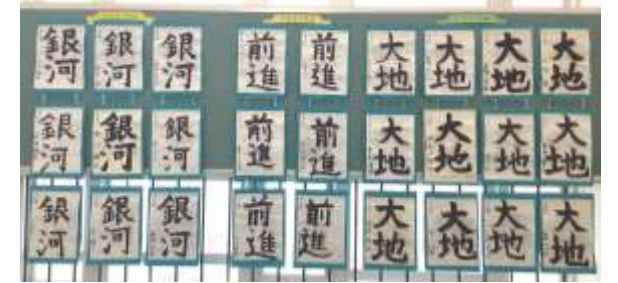 銀河 銀河 銀河 前進 前進 大地 大地 大地 大地
銀河 銀河 銀河 前進 前進 大地 大地 大地 大地
銀河 銀河 銀河 前進 前進 大地 大地 大地 大地